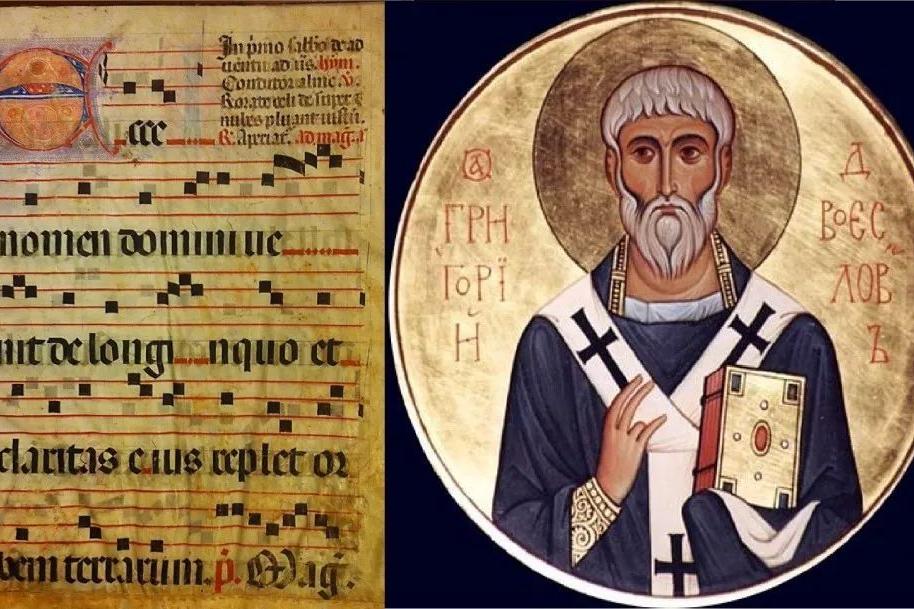 In pmo sabbo de ad
uentu ad uʼs. hym.
Conditor alme V.
Rorate celi desuper ⁊
nubes pluant iustū.
R. Aperiat. ad mag. a
cce
nomen domini ue
nit de longi nquo et
claritas e ius replet or
bem terrarum. p. Mag.
ГРН
ГОРЇ
Й
Д
ВОЄС
ЛОВ
Ъ